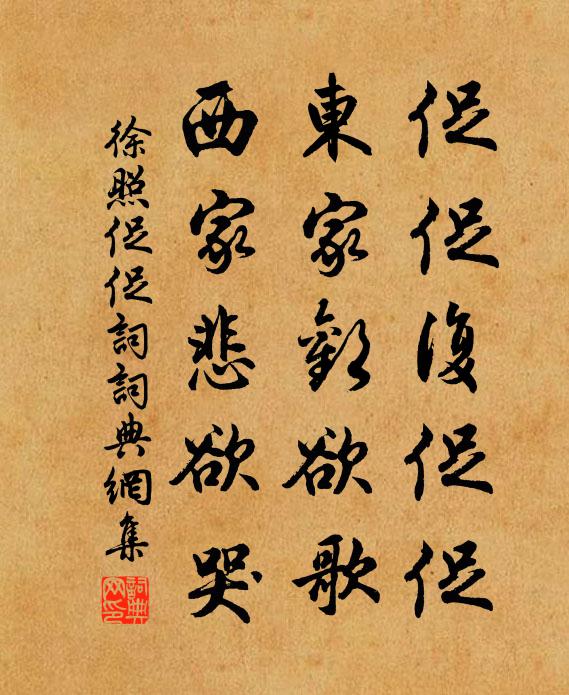 促促復促促
東家歡欲歌
西家悲欲哭
徐照促促詞詞典網集
詞典网印